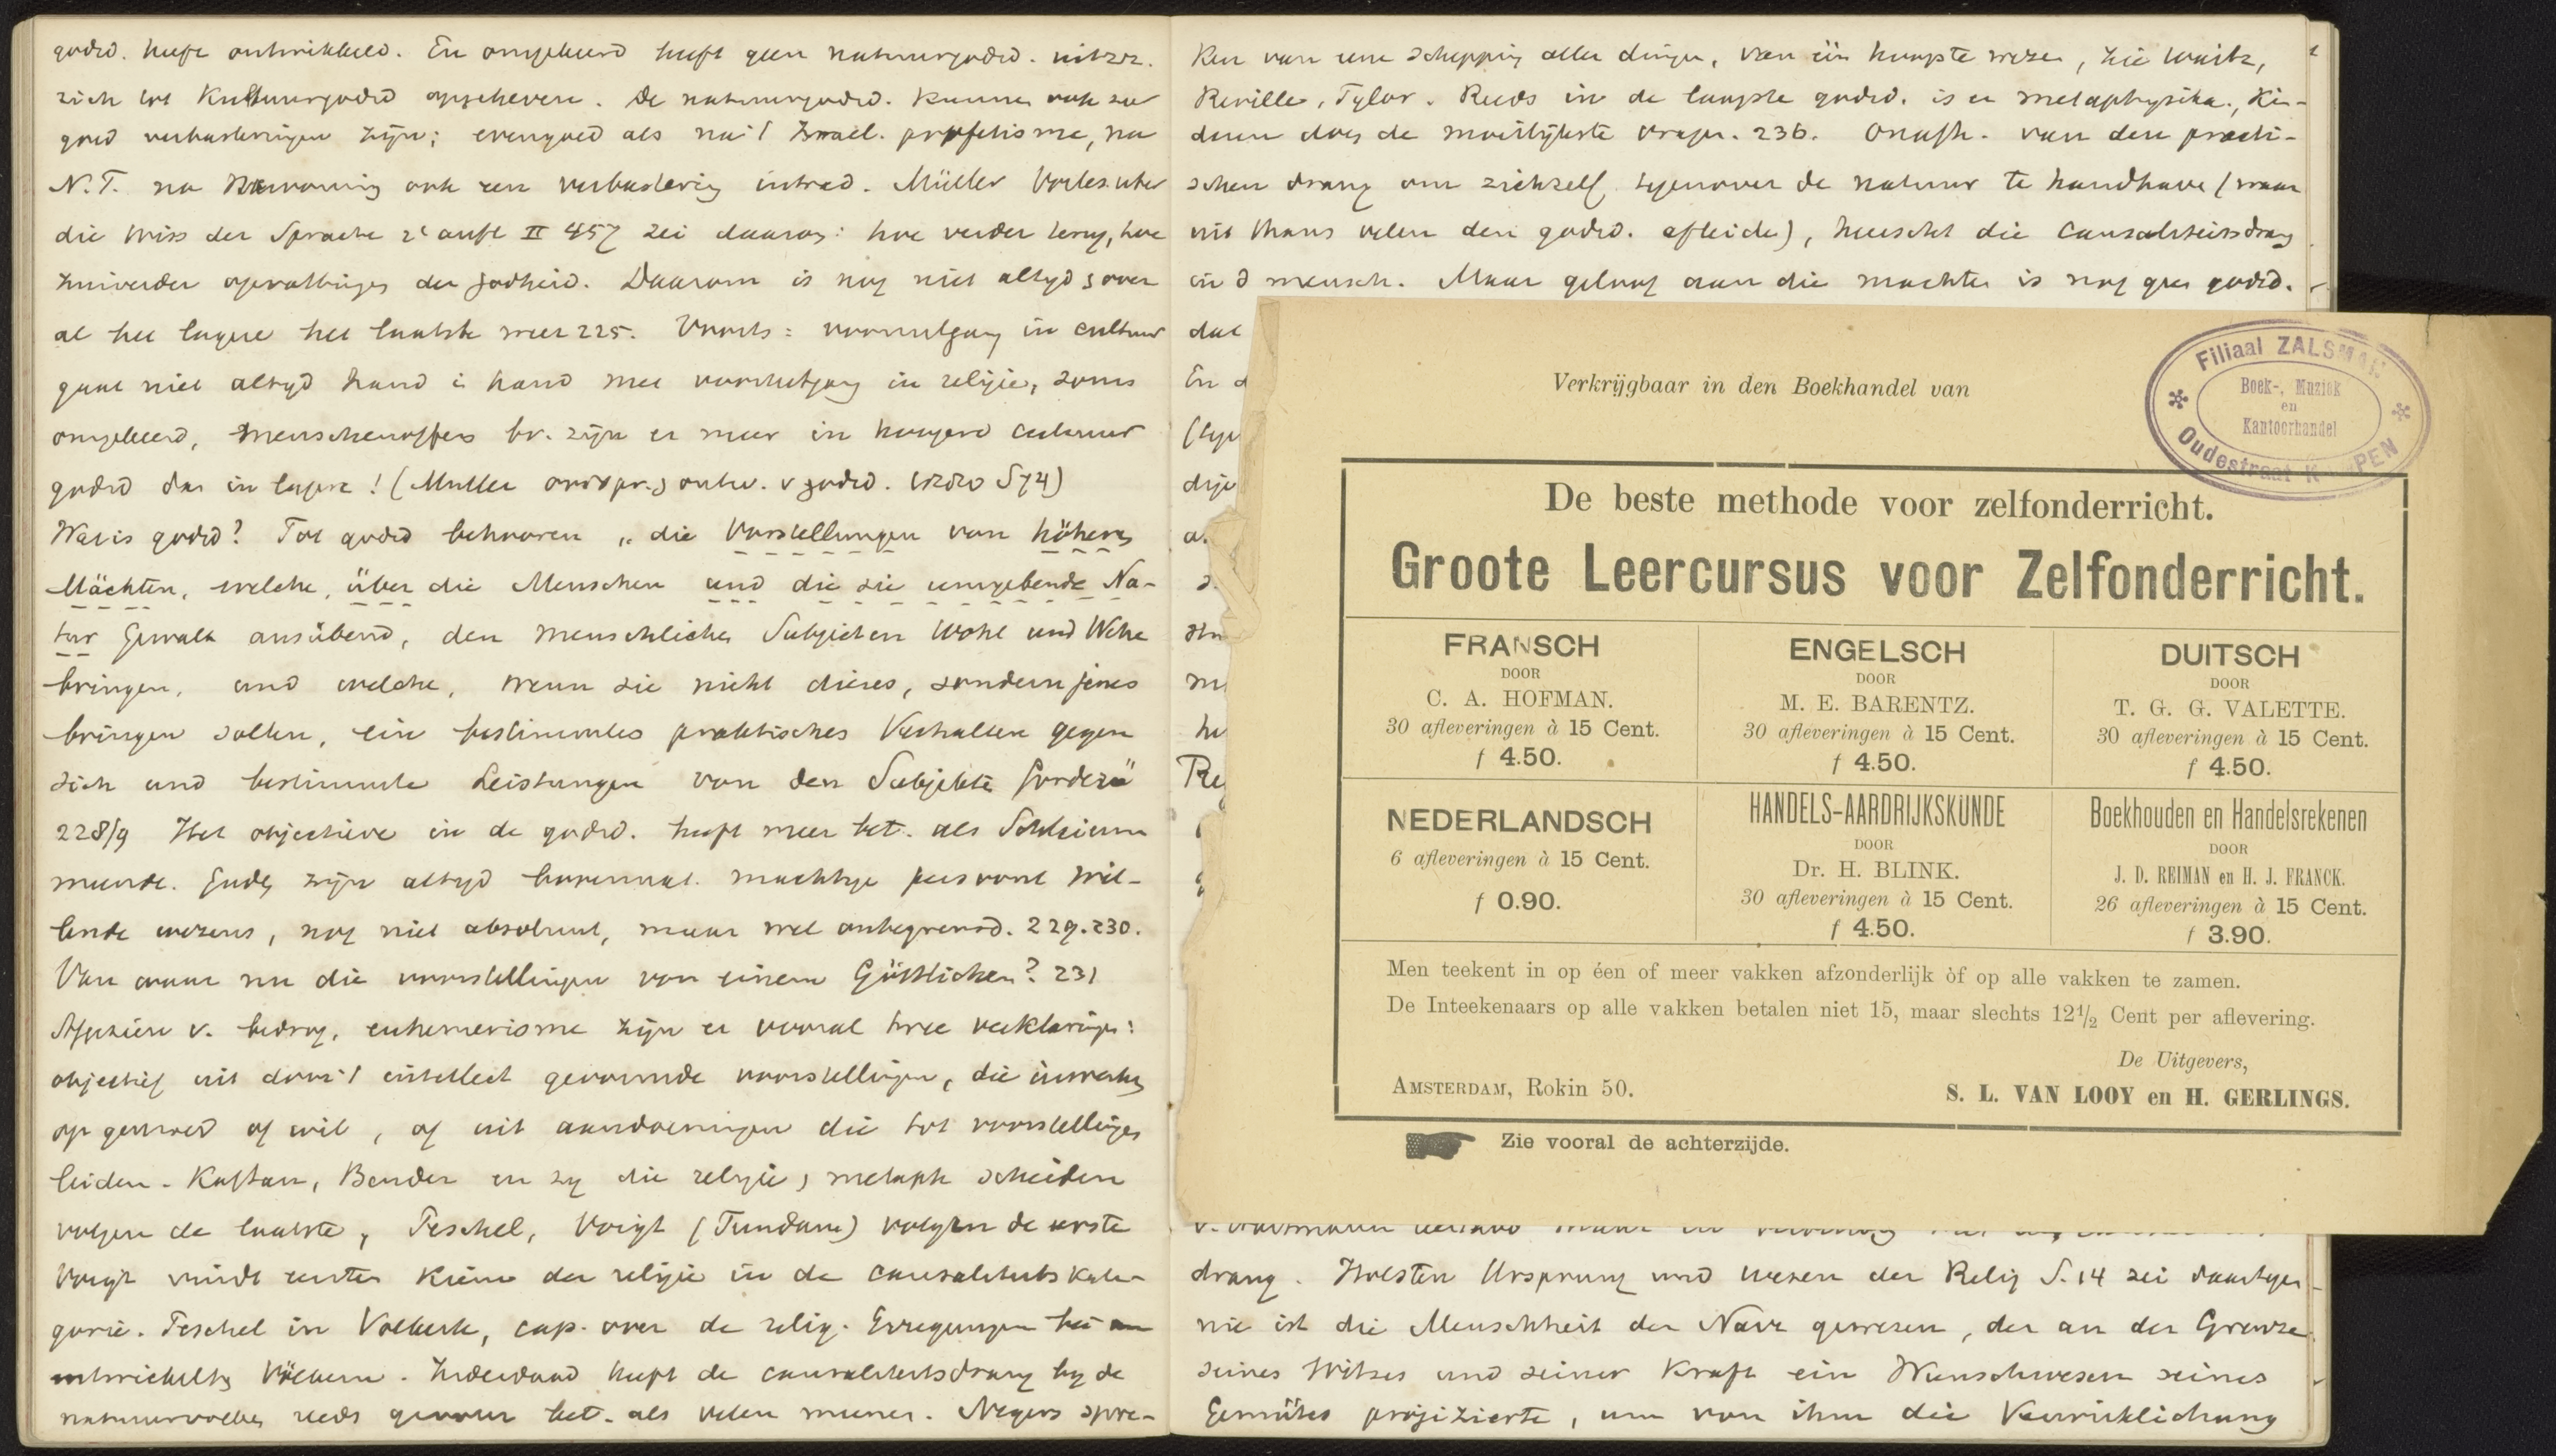 godsd. heeft ontwikkeld. En omgekeerd heeft geen natuurgodsd. uit
zich tot Kultuurgodsd opgeheven. De natuurgodsd. kunnen ook zeer
goed verbasteringen zijn; evengoed als na 't Israel. profetisme, na
N.T. na Hervorming ook een verbastering intrad. Müller Vorles. über
die Wiss der Sprache 2e aufl II 457 zei daarom: hoe verder terug, hoe
zuiverder opvattingen der godheid. Daarom is nog niet altyd
al het lagere het laatste meer 225. Voorts: vooruitgang in cultuur
gaat niet altyd hand i hand met vooruitgang in religie, soms
omgekeerd, menschenoffers bv. zijn er meer in hoogere cultuur
godsd dan in lagere! (Muller oorspr. ontw. v godsd. S74)
Wat is godsd? Tot godsd behooren „die Vorstellungen von höheren
Mächten, welche, über die Menschen und die sie umgebende Na-
tur Gewalt ausübend, den menschlichen Subjecten Wohl und Wehe
bringen, und welche, wenn sie nicht dieses, sondern jenes
bringen sollen, ein bestimmtes praktisches Verhalten gegen
sich und bestimmte Leistungen von den Subjekten fordern"
228/9 Het objectieve in de godsd. heeft meer bet. als Schleierm
meende. Goden zijn altyd bovennat. machtige persoonl wil-
lende wezens, nog niet absoluut, maar wel onbegrensd. 229.230.
Van waar nu die voorstellingen von einem Göttlichen? 231
Afgezien v. bedrog, euhemerisme zijn er vooral twee verklaringen:
objectief uit door 't intellect gevormde voorstellingen, die inwerken
op gemoed of wil, of uit aandoeningen die tot voorstellingen
leiden. Kaftan, Bender en zy die religie, metaph scheiden
volgen de laatste, Peschel, Voigt (Fundam) volgen de eerste
Voigt vindt eerste kiem der religie in de causaliteits kate-
gorie. Peschel in Volkerk, cap. over de relig. Erregungen bei un
entwickelten Völkern. Inderdaad heeft de causaliteitsdrang by de
natuurvolken reeds grooter bet. als velen meenen. Negers spre-
ken van eene schepping aller dingen, van één hoogste wezen, zie Waitz,
Reville, Tylor. Reeds in de laagste godsd. is er metaphysika. Kin-
deren doen de moeilijkste vragen. 236. Onafh. van den practi-
schen drang om zichzelf tegenover de natuur te handhaven (waar
uit thans velen den godsd. afleiden), heerscht die Causaliteitsdrang
in d mensch. Maar geloof aan die machten is nog geen godsd.
dat
En
Verkrijgbaar in den Boekhandel van
Filiaal ZALSMAN
Boek-, Muziek
en
Kantoorhandel
Oudestraat K PEN
De beste methode voor zelfonderricht.
Groote Leercursus voor Zelfonderricht.
FRANSCH
DOOR
C. A. HOFMAN.
30 afleveringen à 15 Cent.
f 4.50.
ENGELSCH
DOOR
M. E. BARENTZ.
30 afleveringen à 15 Cent.
f 4.50.
DUITSCH
DOOR
T. G. G. VALETTE.
30 afleveringen à 15 Cent.
f 4.50.
NEDERLANDSCH
6 afleveringen à 15 Cent.
f 0.90.
HANDELS-AARDRIJKSKUNDE
DOOR
Dr. H. BLINK.
30 afleveringen à 15 Cent.
f 4.50.
Boekhouden en Handelsrekenen
DOOR
J. D. REIMAN en H. J. FRANCK.
26 afleveringen à 15 Cent.
f 3.90.
Men teekent in op éen of meer vakken afzonderlijk òf op alle vakken te zamen.
De Inteekenaars op alle vakken betalen niet 15, maar slechts 12½ Cent per aflevering.
De Uitgevers,
AMSTERDAM, Rokin 50.
S. L. VAN LOOY en H. GERLINGS.
Zie vooral de achterzijde.
drang. Holsten Ursprung und wesen der Relig S.14 zei daartegen
nie ist die Menschheit der Narr gewesen, der an der Grenze
seines Witzes und seiner Kraft ein Wunschwesen seines
Gemütes projizierte, um von ihm die Verwirklichung